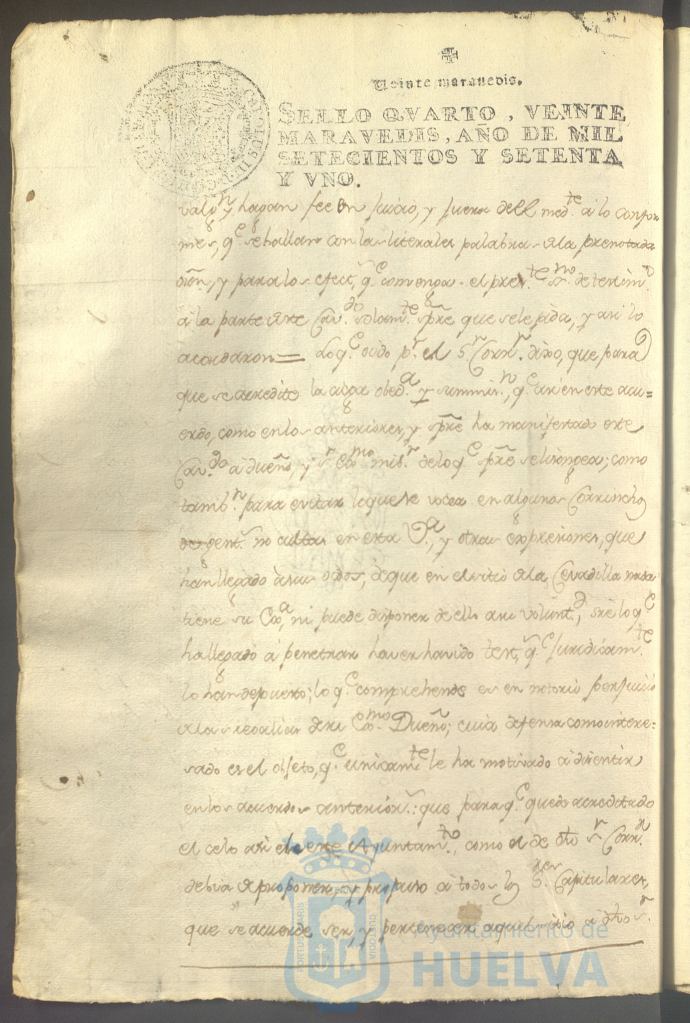 Veinte maravedis.
SELLO QVARTO, VEINTE
MARAVEDIS, AÑO DE MIL
SETECIENTOS Y SETENTA
Y VNO.
CAROLUS III
valgn. y hagan fee en juicio, y fuera dell med.te a lo confor
mes, q.e se hallan con las literales palabras de la prenotada
orn., y para los efect.s q.e convenga el pres.te ss.no de testim.o
a la parte de este Cav.do solam.te spre que sele pida, y asi lo
acordaron = Lo q.e oido p.r el S.r Corr.r dixo, que para
que se acredite la obed.a y summis.n, q.e asi en este acu=
erdo, como en los anteriores, y spre ha manifestado este
Cav.do a dueño, y s.r Ex.mo mi s.r de lo q.e spre se lisongea; como
tamb.n para evitar lo que se vocea en algunos Corrinchos
de gent.s no cultas en esta V.a, y otras expresiones, que
han llegado a sus oidos, de que en el sitio de la Cevadilla nada
tiene su Ex.a ni puede disponer de ello a su volunt.d, sre lo q.e
ha llegado a penetrar haver havido test.s q.e juridicam.te
lo han depuesto; lo q.e comprehende es en notorio perjuicio
de las regalias de su Ex.mo Dueño; cuia defensa como intere=
sado es el objeto, q.e unicam.te le ha motivado a disentir
en los acuerdos anterior.s: que para q.e quede acreditado
el celo asi de este Ayuntam.to, como el de dho s.r Corr.r
debia de proponer, y propuso a todos los S.res Capitulares,
que se acuerde ser, y pertenecer aquel sitio a dho s.r
Ayuntamiento de
HUELVA
PORTUS MARIS
CUSTODIA